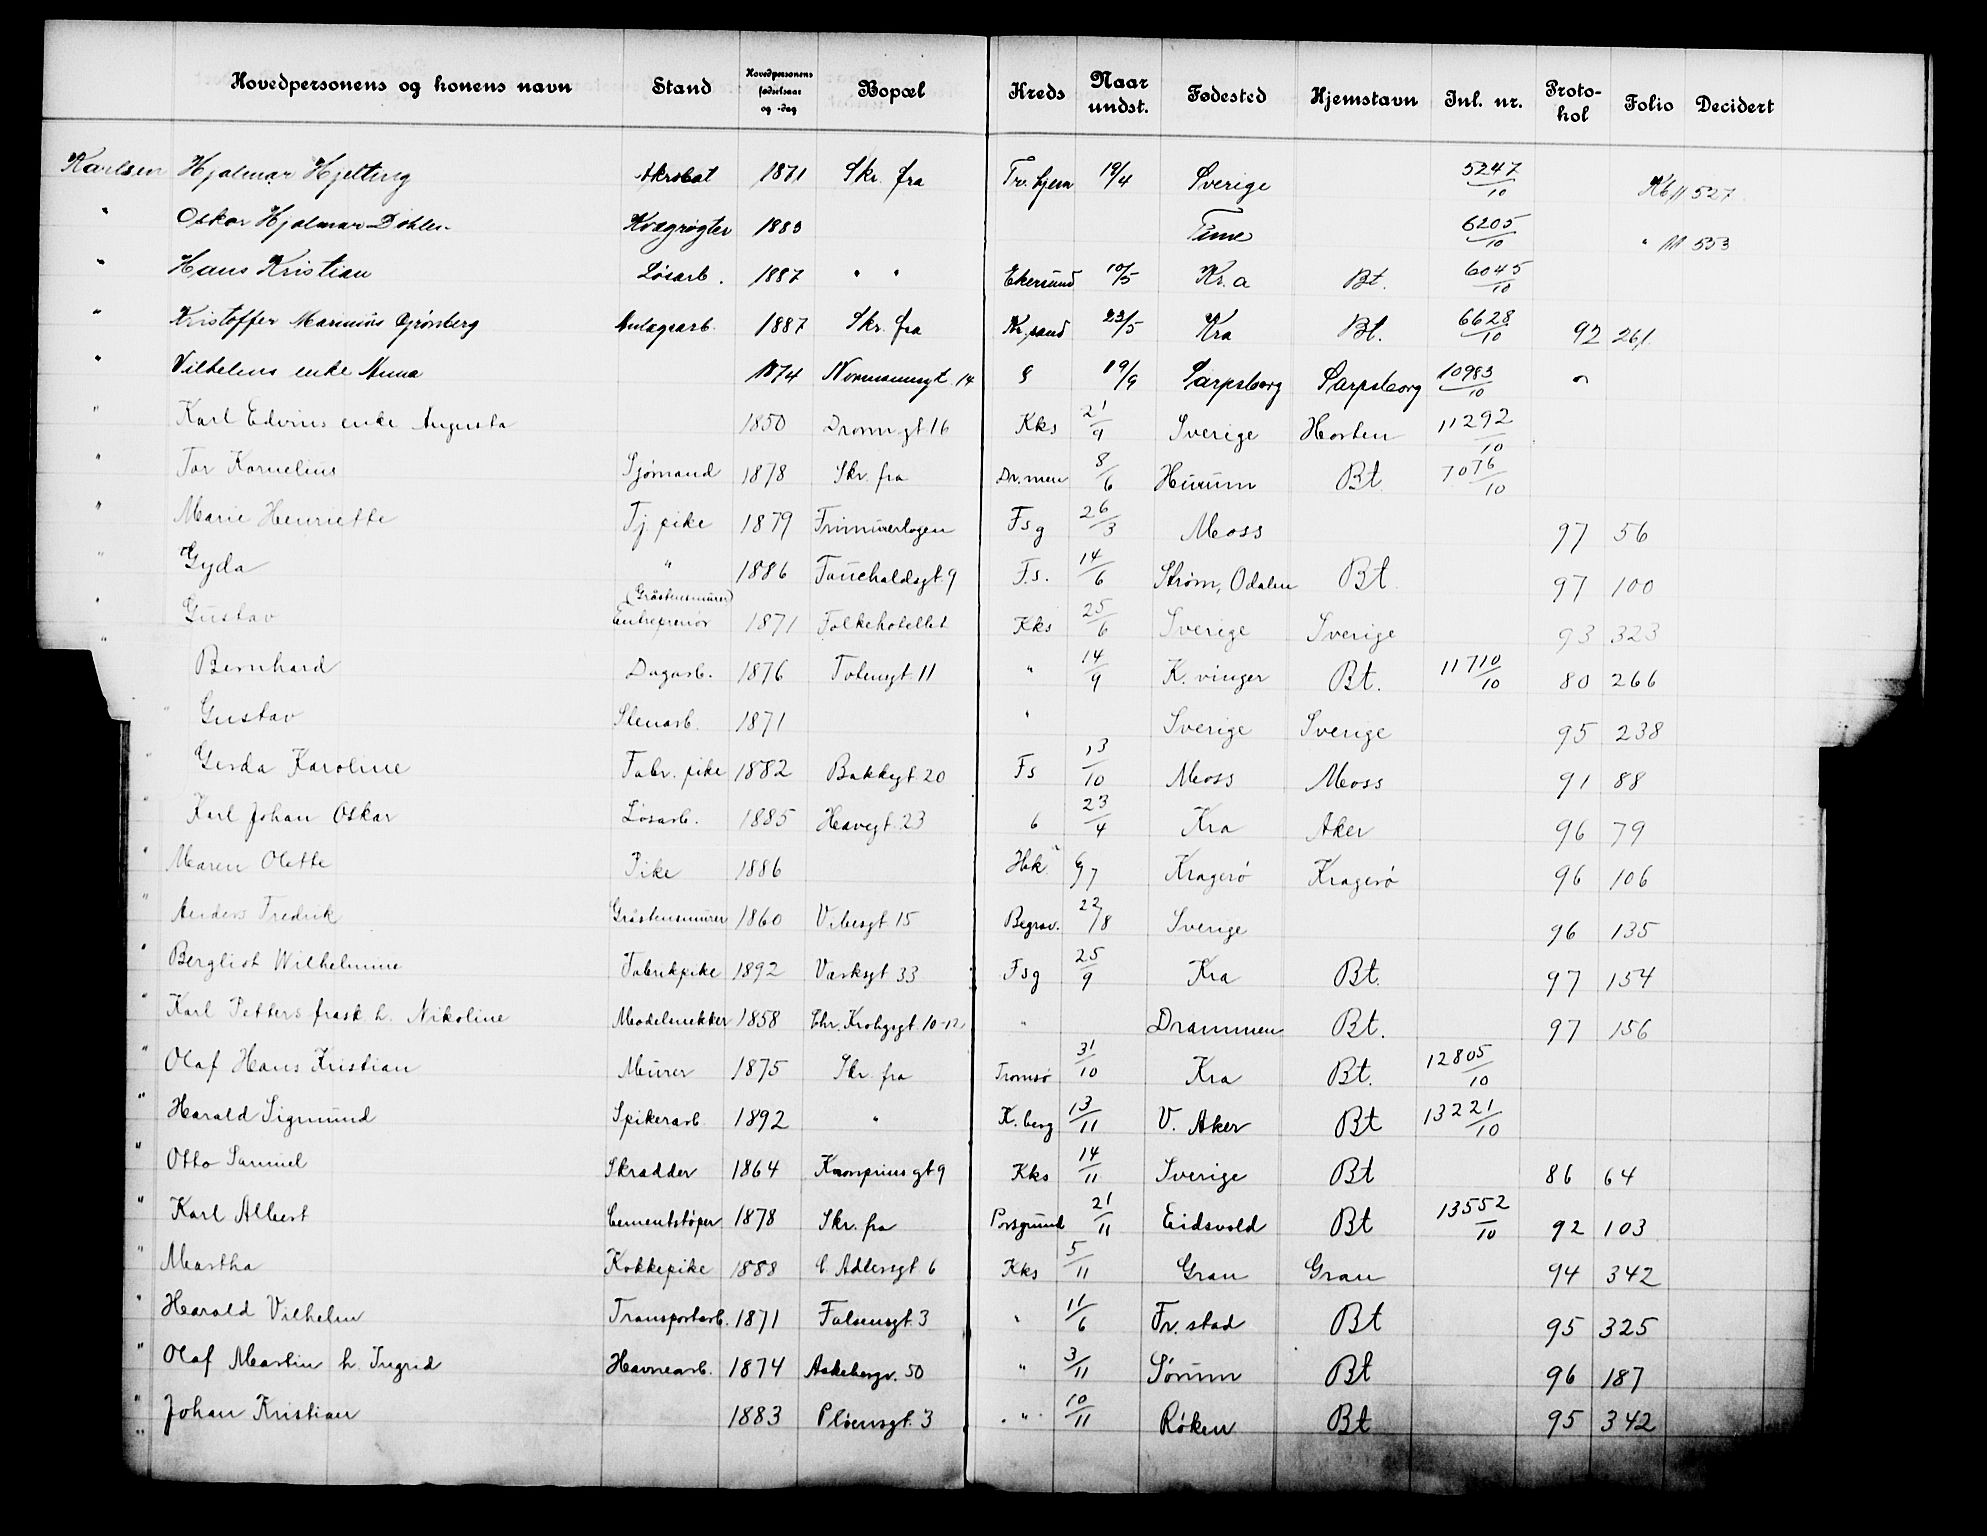 Hovedpersonens og konens navn | Stand | Hovedpersonens fødselsaar og -dag | Bopæl | Kreds | Naar undst. | Fødested | Hjemstavn | Jnl. nr. | Protokol | Folio | Decidert
Karlsen Hjalmar Hjelting Akrobat 1871 Skr. fra Tr.hjem 19/4 Sverige 5247/10 527
" Oskar Hjalmar Kvægrøgter 1883 Time 6205/10 " 553
" Hans Kristian Løsarb. 1887 " " Ekersund 10/5 Kr.a Bt. 6045/10
" Kristoffer Marinius Grønberg Anlægsarb. 1887 Skr. fra Kr,sand 23/5 Kra Bt. 6628/10 92 261
" Vilhelms enke Anna 1874 Normannsgt 14 19/9 Sarpsborg Sarpsborg 10983/10
" Karl Edvins enke Augusta 1850 Dronn gt 16 Kks 21/9 Sverige Horten 11292/10
" Tor Kornelius Sjømand 1878 Skr. fra Dr.men 8/6 Hurum Bt 7076/10
" Marie Henriette Tj pike 1879 Frimurerlogen Fsg 26/3 Moss 97 56
" Gyda " 1886 Fauchaldsgt. 9 F.s. 14/6 Strøm, Odalen Bt 97 100
" Gustav (Gråstensmurer) Entreprenør 1871 Folkehotellet Kks 25/6 Sverige Sverige 93 323
" Bernhard Dagarb. 1876 Totengt 11 " 14/9 K.vinger Bt. 11710/10 80 266
" Gustav Stenarb. 1871 " Sverige Sverige 95 238
" Gerda Karoline Fabr. pike 1882 Bakkegt. 20 Fs 13/10 Moss Moss 91 88
" Karl Johan Oskar Løsarb. 1885 Heavegt. 23 6 23/4 Kra Aker 96 79
" Maren Olette Pike 1886 Hbk 6/7 Kragerö Kragerö 96 106
" Anders Fredrik Gråstensmurer 1860 Vibesgt. 15 Begrav. 22/8 Sverige 96 135
" Bergliot Wilhelmine Fabrikpike 1892 Værksgt 33 Fsg 25/9 Kra Bt. 97 154
" Karl Petters frask. h. Nikoline Modelsnekker 1858 Chr. Krohgsgt. 10-12 " Drammen Bt. 97 156
" Olaf Hans Kristian Murer 1875 Skr. fra Tromsö 31/10 Kra Bt. 12805/10
" Harald Sigmund Spikerarb. 1892 " K.berg 13/11 V. Aker Bt 13221/10
" Otto Samuel Skrædder 1864 Kronprins gt 9 Kks 14/11 Sverige Bt 86 64
" Karl Albert Cementstøper 1878 Skr. fra Porsgrund 21/11 Eidsvold Bt 13552/10 92 103
" Martha Kokkepike 1888 C. Adlersgt 6 Kks 5/11 Gran Gran 94 342
" Harald Vilhelm Transportarb. 1871 Falsensgt. 3 " 11/6 Fr.stad Bt 95 325
" Olaf Martin h. Ingrid Havnearb. 1874 Askebergv. 50 " 3/11 Sørum Bt 96 187
" Johan Kristian 1883 Pløensgt. 3 " 10/11 Røken Bt 95 342
"